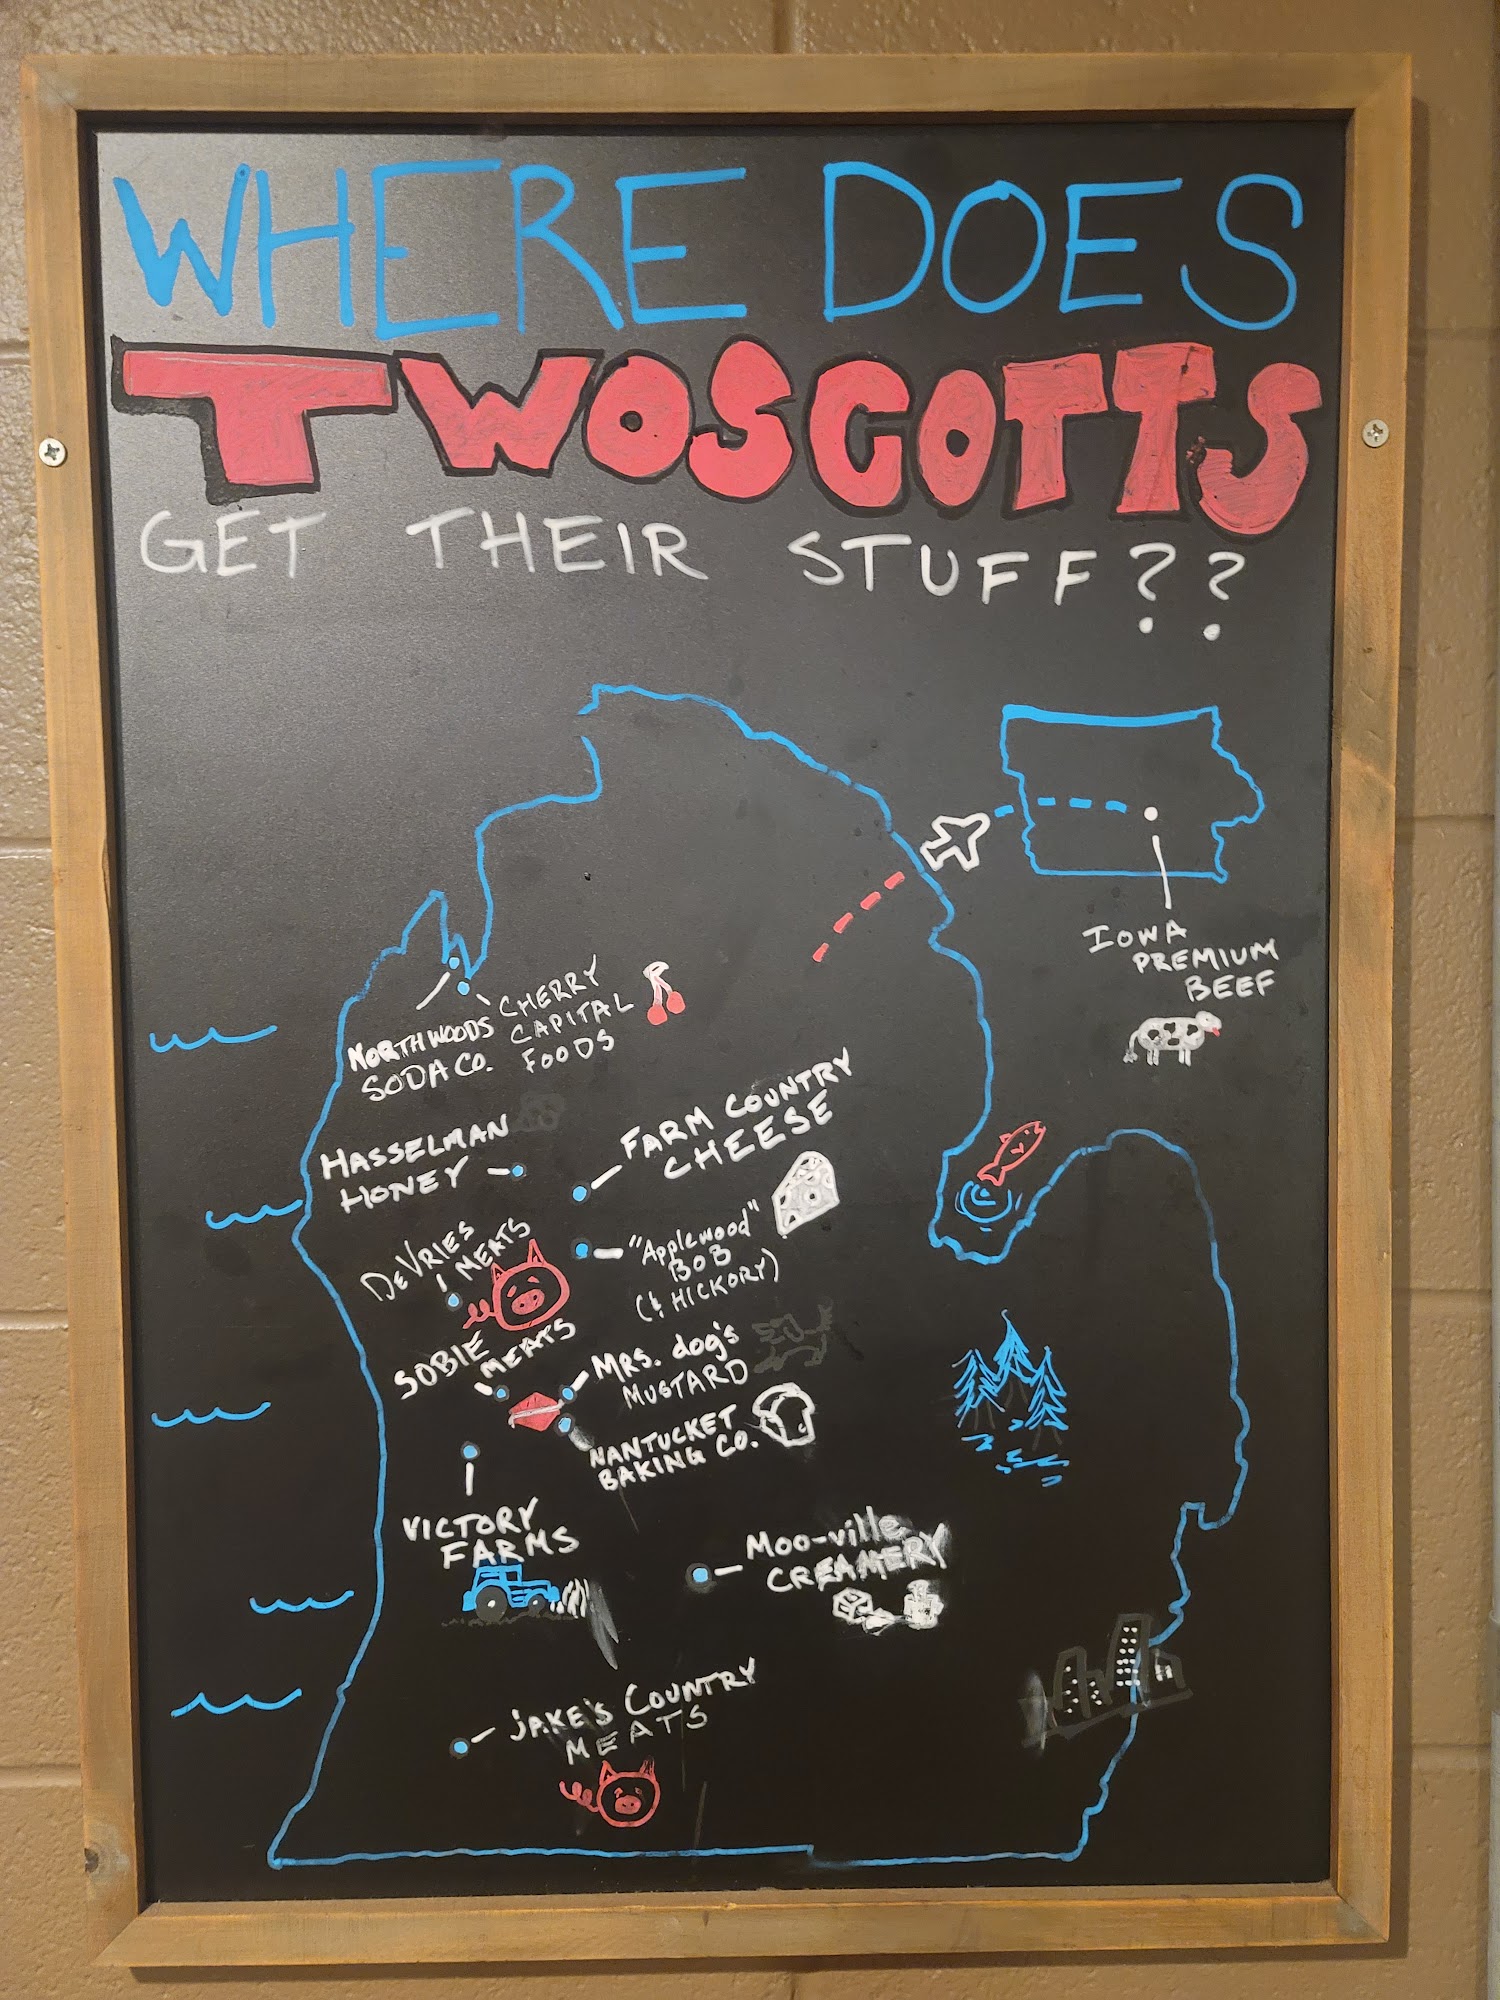 WHERE DOES
TWOSCOTTS
GET THEIR STUFF??
IOWA
PREMIUM
BEEF
NORTHWOODS
SODA CO.
CHERRY
CAPITAL
FOODS
HASSELMAN
HONEY
FARM COUNTRY
CHEESE
DEVRIES
MEATS
"Applewood"
BOB
(& HICKORY)
SOBIE
MEATS
MRS. dog's
MUSTARD
NANTUCKET
BAKING CO.
VICTORY
FARMS
Moo-ville
CREAMERY
JAKE'S COUNTRY
MEATS